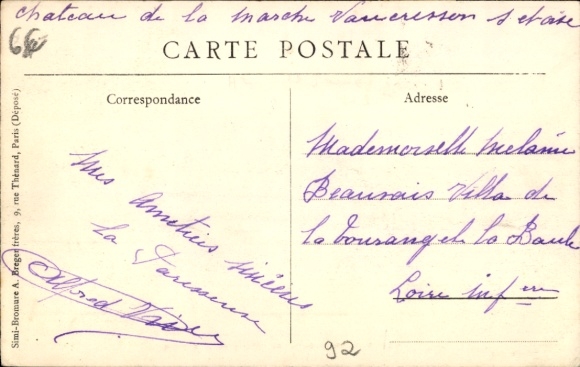 chateau de la marche Vaucresson S et oise
66
CARTE POSTALE
Correspondance
Adresse
Mes Amitiés sincères
la Paresseuse
Alfred
Mademoiselle Melanie
Beauvais Villa de
la Tourangel la Baule
Loire Infere
92
Simi-Bromure A. Breger frères, 9, rue Thénard, Paris (Déposé)